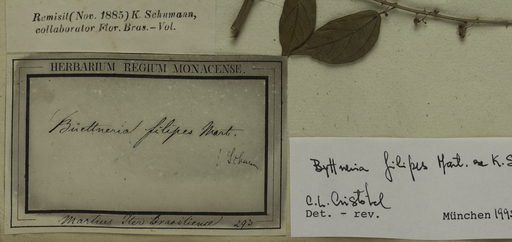 Remisit (Nov. 1885) K. Schumann,
collaborator Flor. Bras. – Vol.
HERBARIUM REGIUM MONACENSE.
Büettneria filipes Mart.
Martius Iter Brasiliense
Byttneria filipes Mart. ex K. S
C. L. Cristóbal
Det. - rev. München 199